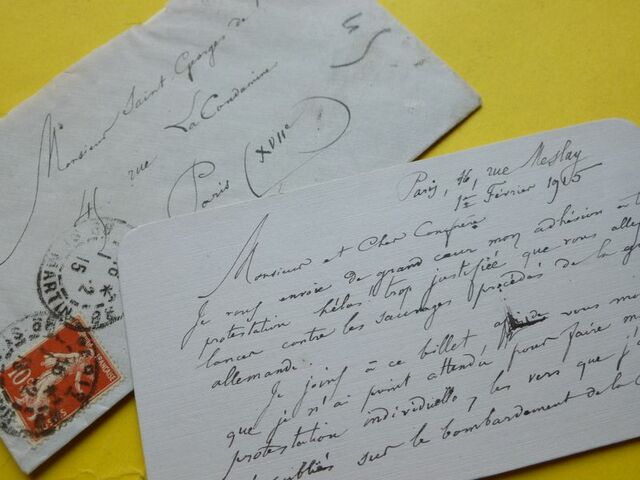 Monsieur Saint Georges de
45 rue La Condamine
Paris (XVIIe)
45
MARTIN
15 2
10
Paris, 16, rue Meslay
1er Février 1915
Monsieur et Cher Confrère
Je vous envoie de grand cœur mon adhésion à
protestation hélas trop justifiée que vous alle
lancer contre les sauvages procédés de la
allemande.
Je joins à ce billet, vous
que je n'ai point attendu pour faire m
protestation individuelle, les vers que j'a
publiés sur le bombardement de la